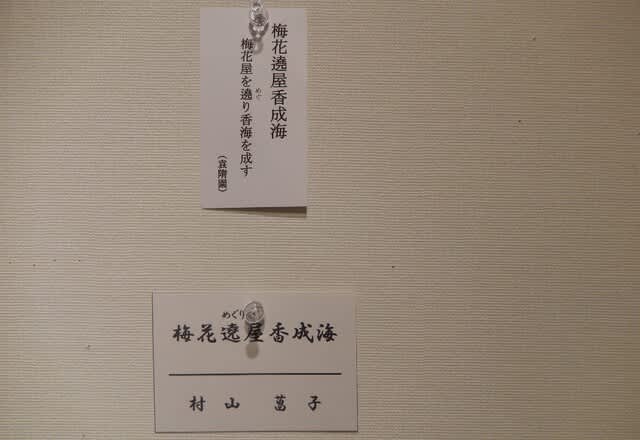 梅花遶屋香成海
梅花屋を遶り香海を成す
めぐ
（袁隋園）
めぐり
梅花遶屋香成海
村山 菖子